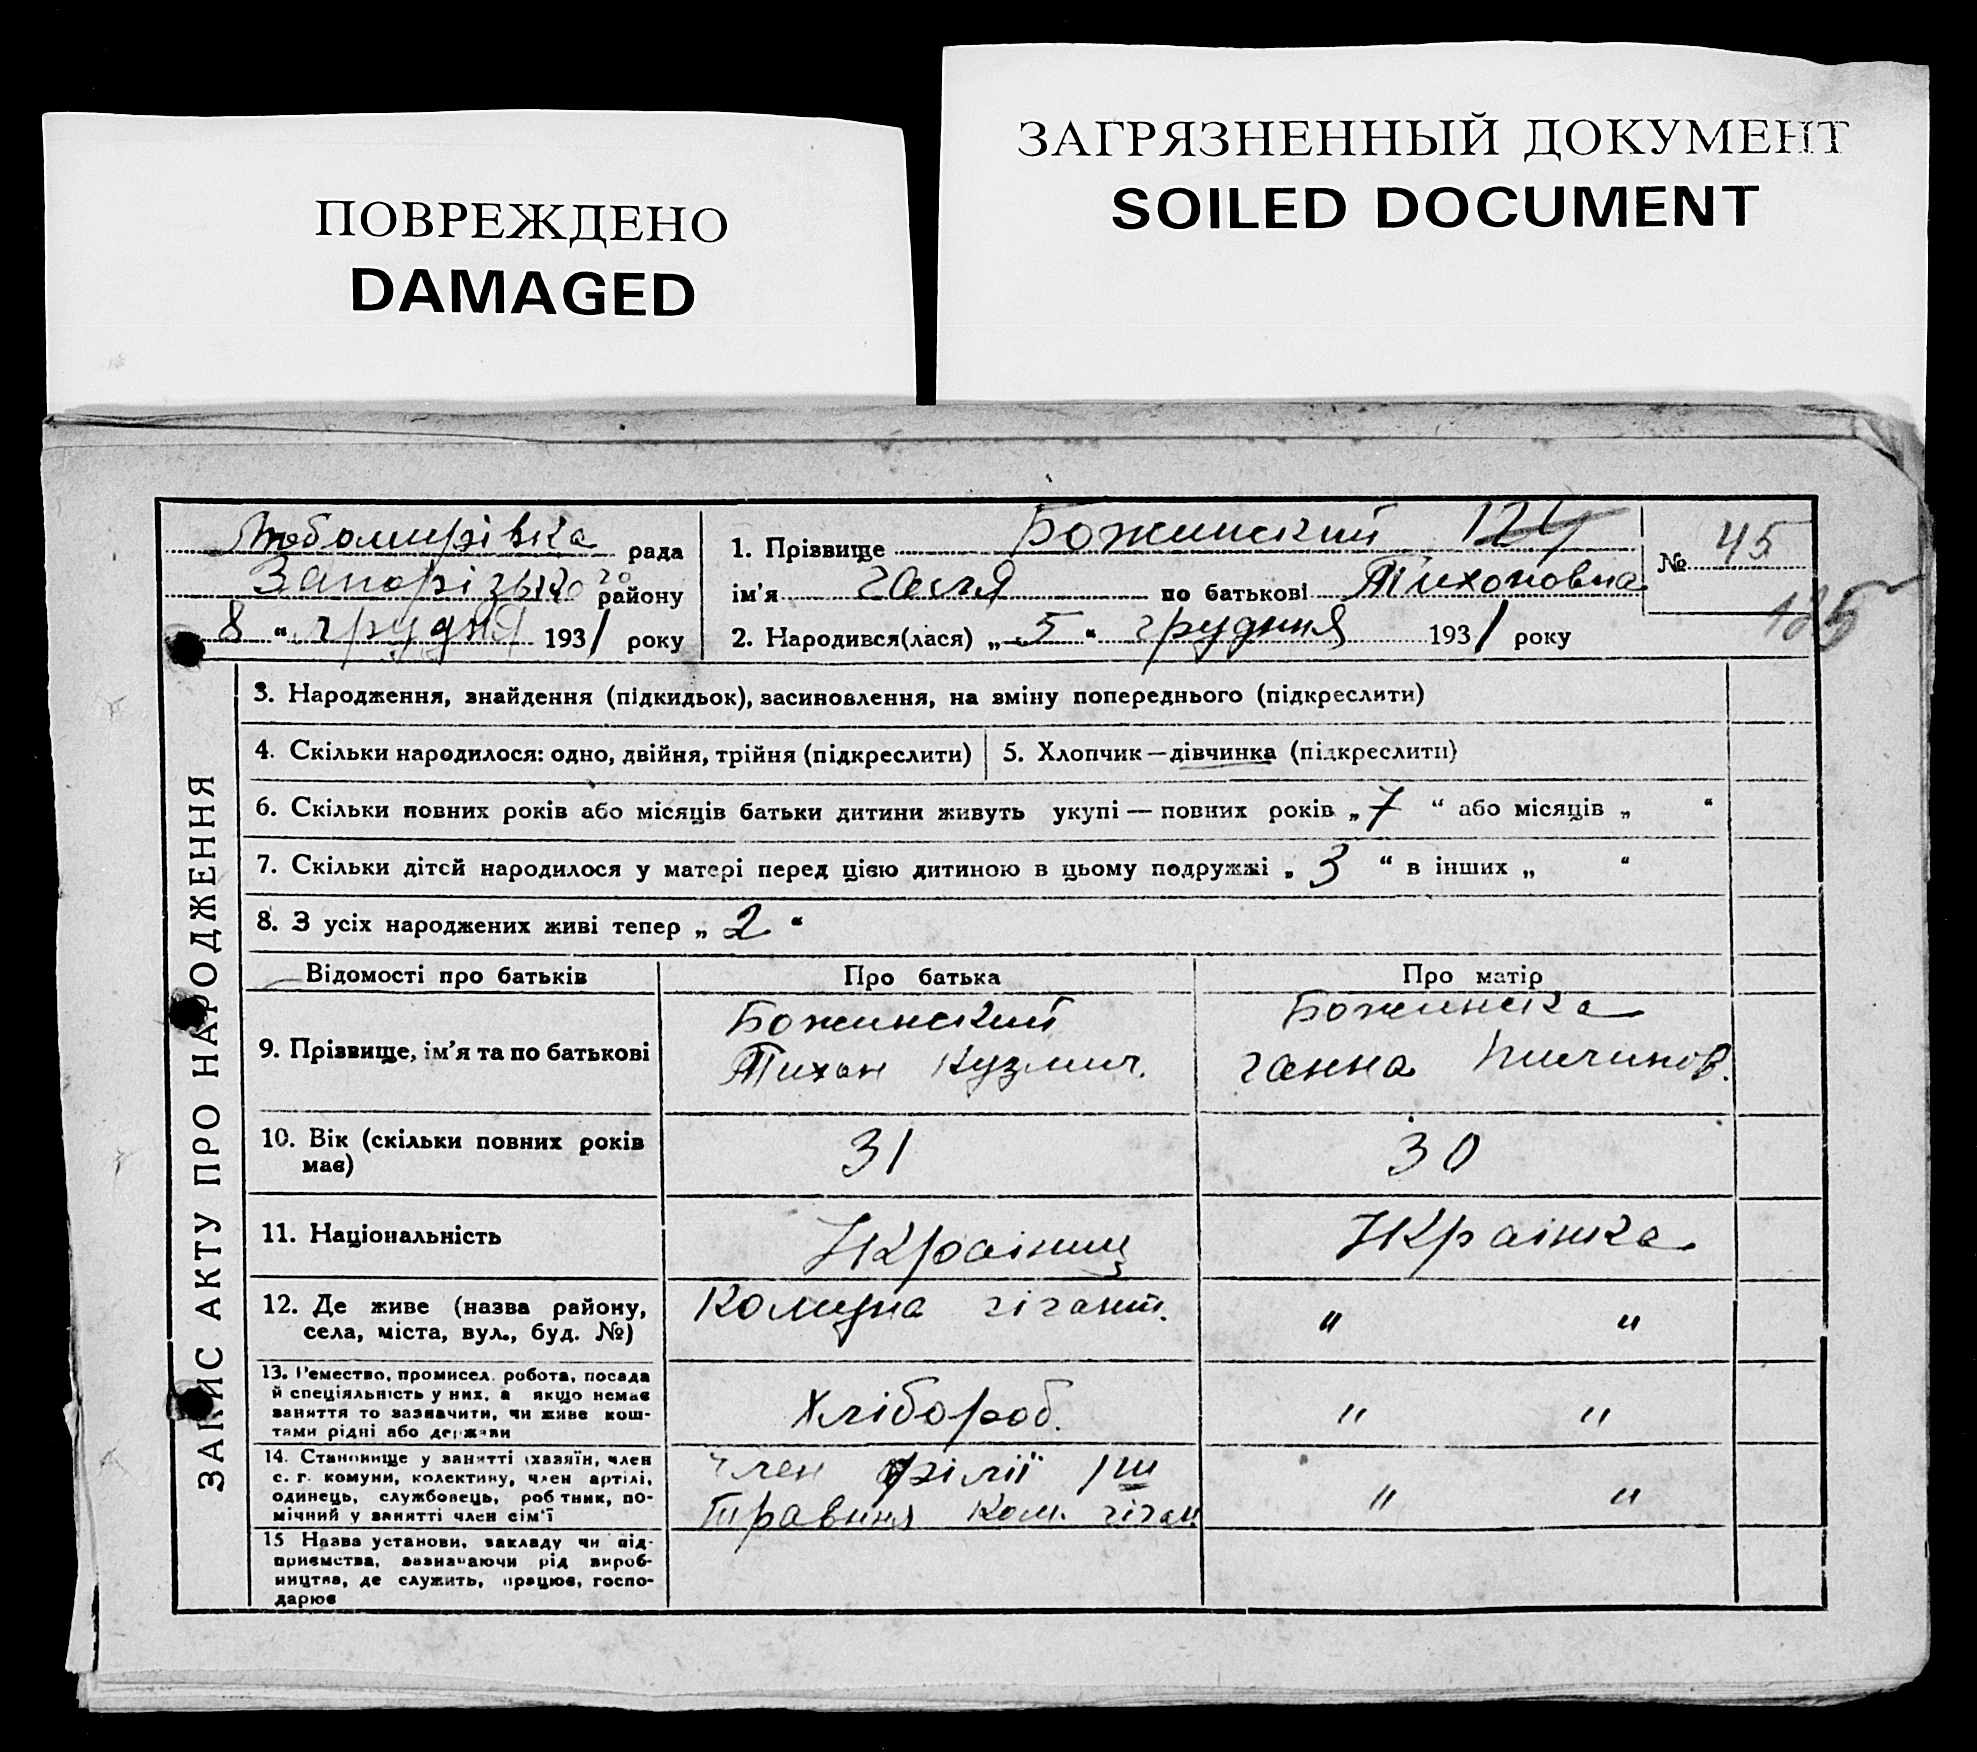 ПОВРЕЖДЕНО
DAMAGED
ЗАГРЯЗНЕННЫЙ ДОКУМЕНТ
SOILED DOCUMENT
Любомирівка рада
Запорізького району
8 " грудня 1931 року
1. Прізвище Божинский 124
ім'я Галя по батькові Тихоновна
2. Народився(лася) „ 5 " грудння 1931 року
№ 45
185
ЗАПИС АКТУ ПРО НАРОДЖЕННЯ
3. Народження, знайдення (підкидьок), засиновлення, на зміну попереднього (підкреслити)
4. Скільки народилося: одно, двійня, трійня (підкреслити)
5. Хлопчик — дівчинка (підкреслити)
6. Скільки повних років або місяців батьки дитини живуть укупі — повних років „ 7 " або місяців „ "
7. Скільки дітей народилося у матері перед цією дитиною в цьому подружжі „ 3 " в інших „ "
8. З усіх народжених живі тепер „ 2 "
Відомості про батьків
Про батька
Про матір
9. Прізвище, ім'я та по батькові
Божинский
Тихон Кузмич.
Божинска
Ганна
10. Вік (скільки повних років
має)
31
30
11. Національність
Украінец
Украінка
12. Де живе (назва району,
села, міста, вул., буд. №)
Комуна гігант.
" "
13. Ремество, промисел. робота, посада
й спеціяльність у них, а якщо немає
заняття то зазначити, чи живе кош-
тами рідні або держави
Хлібороб.
" "
14. Становище у занятті (хазяїн, член
с. г. комуни, колективу, член артілі,
одинець, службовець, робітник, по-
мічний у занятті член сім'ї
член філії 1го
Травння Ком. гіган
" "
15 Назва установи, закладу чи під-
приємства, зазначаючи рід вироб-
ництва, де служить, працює, госпо-
дарює